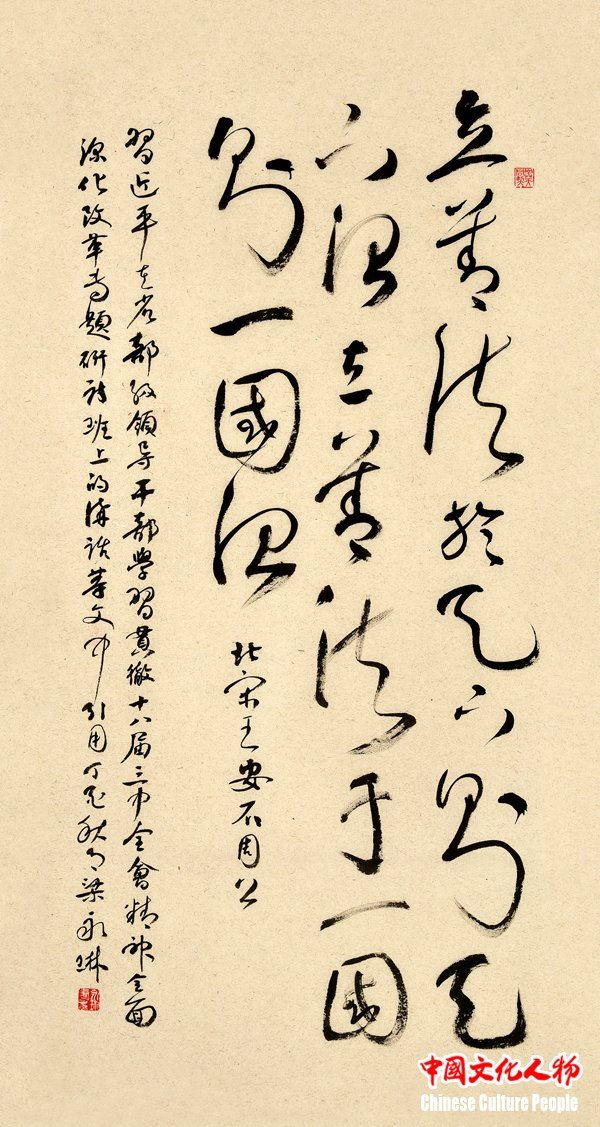 立善法於天下則天
下治立善法于一國
則一國治
北宋王安石周公
習近平在省部级領导干部學習貫徹十八届三中全會精神全面
深化改革专題研討班上的講話等文中引用丁酉秋月梁永琳
中國文化人物
Chinese Culture People